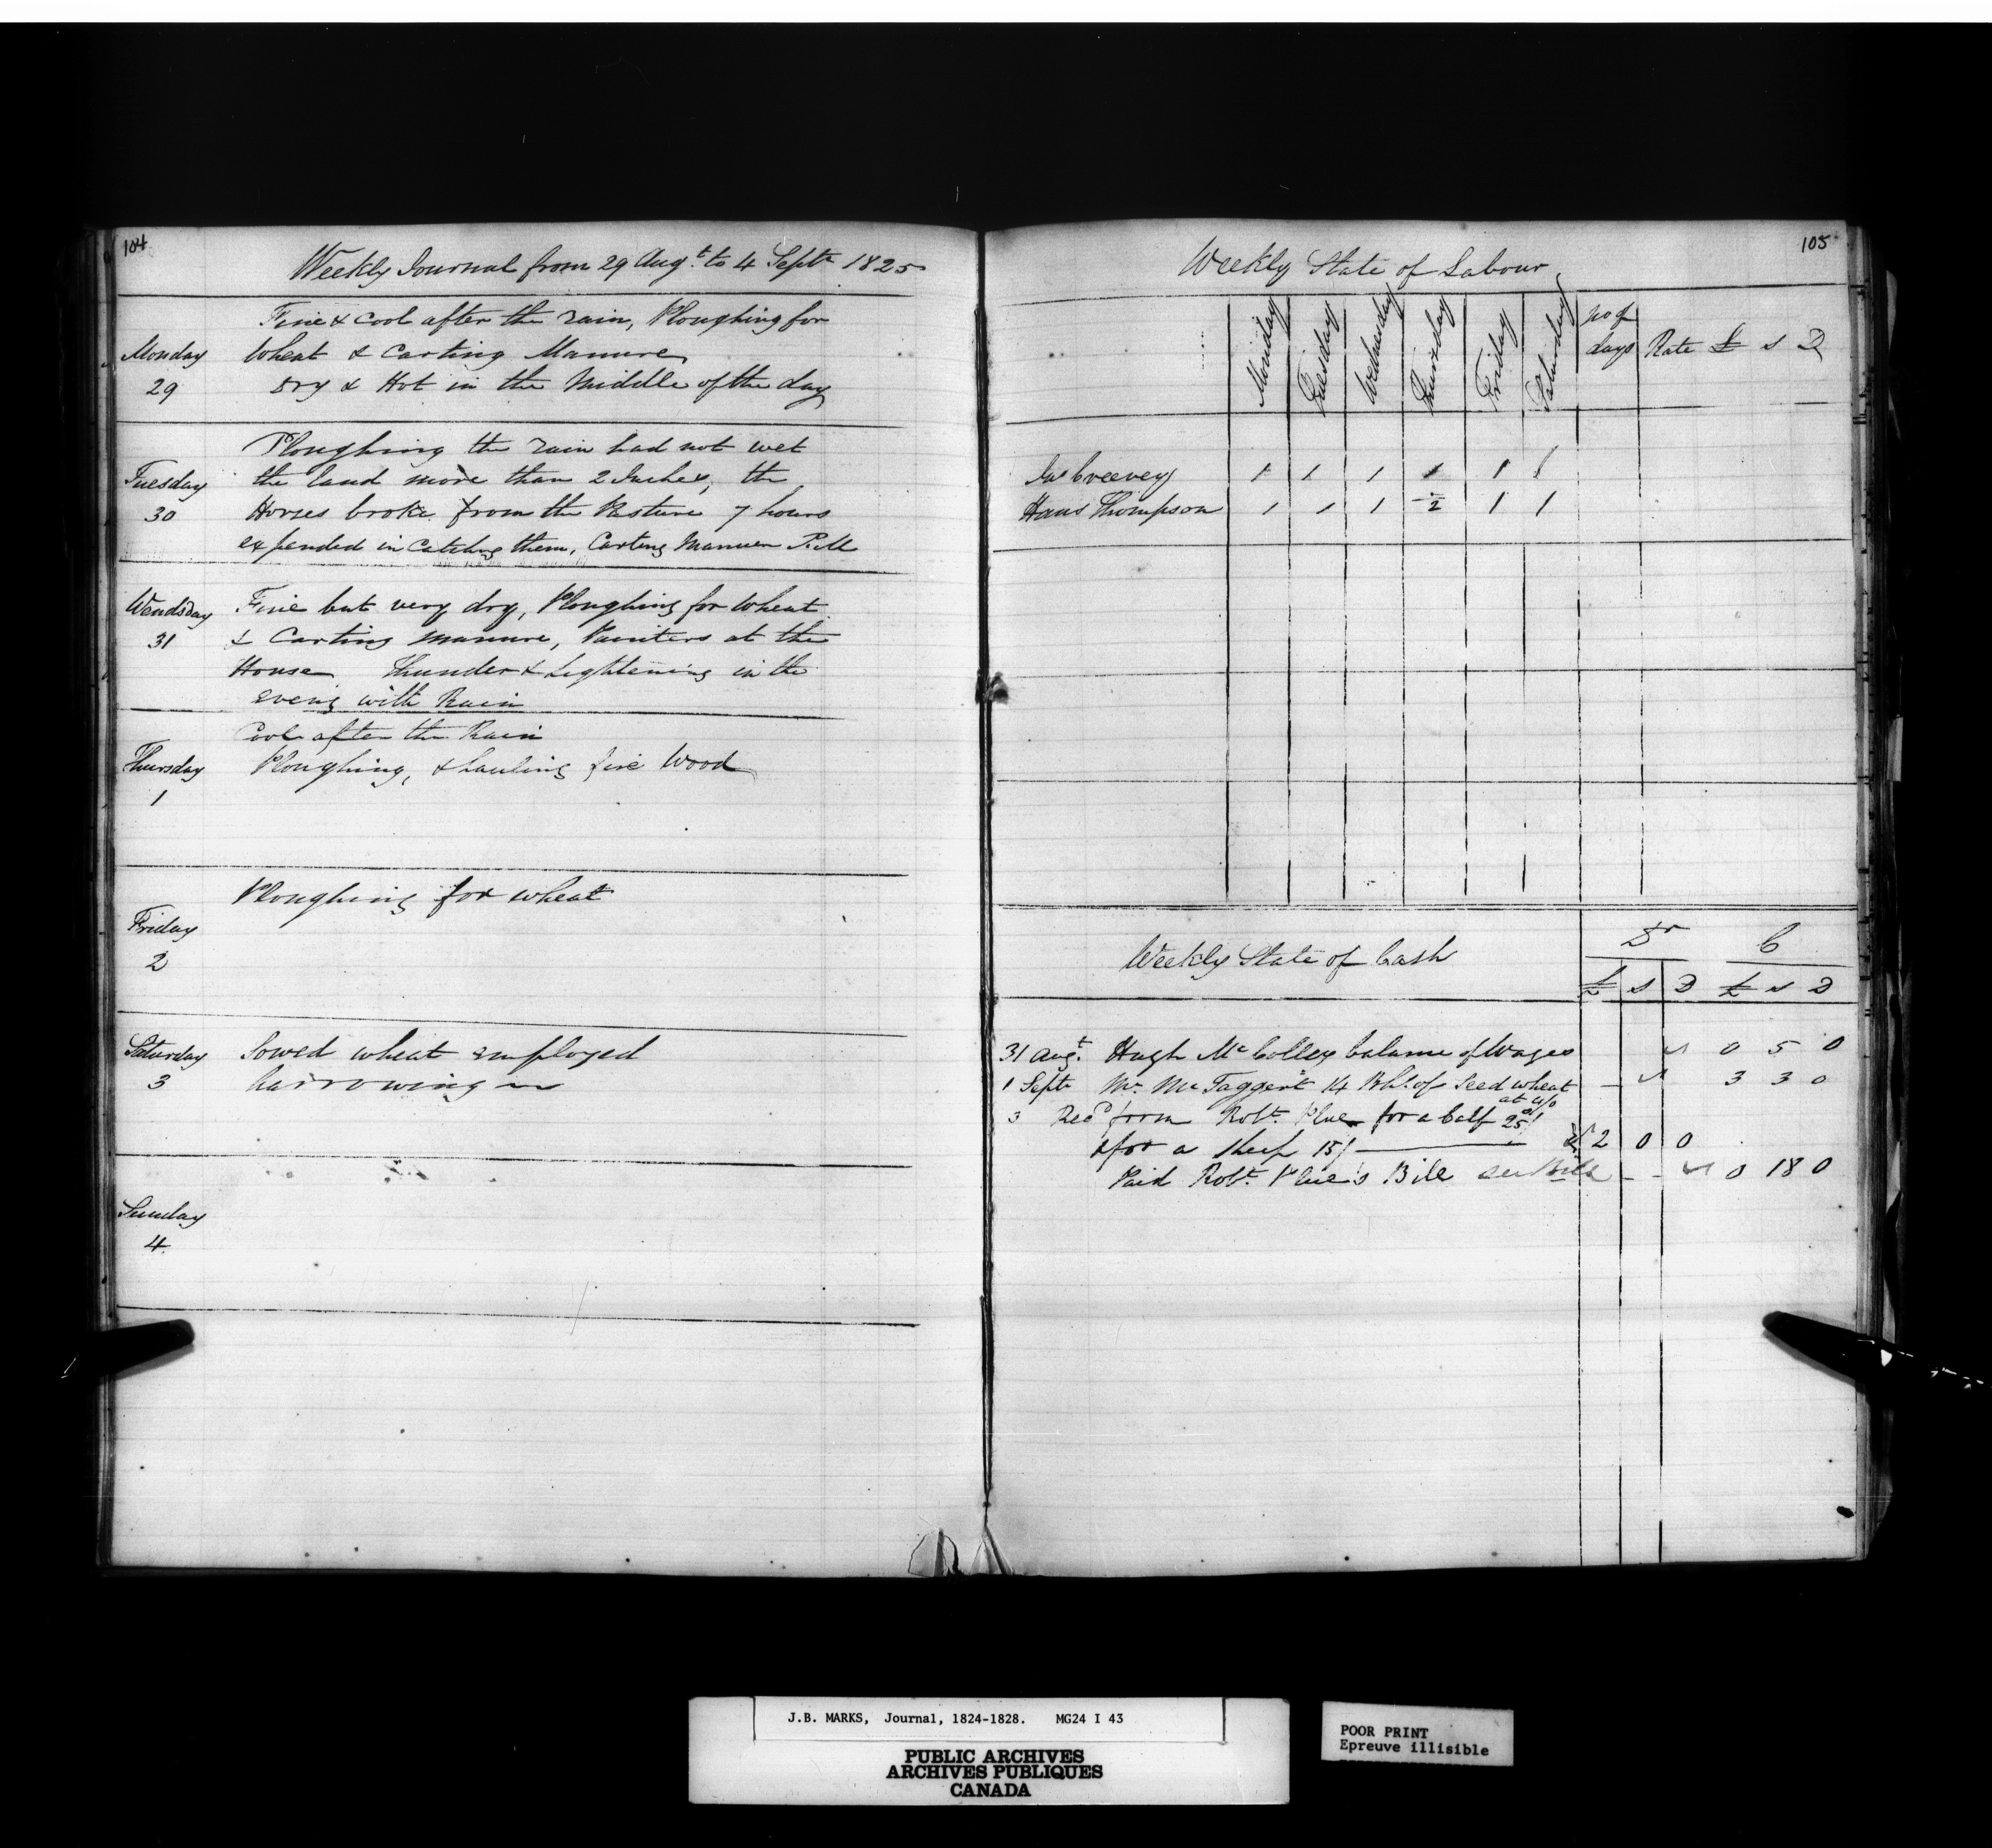 104
Weekly Journal from 29 Augt. to 4 Septr 1825
Monday
29
Fine & Cool after the rain, Ploughing for
Wheat & Carting Manure
Dry & Hot in the Middle of the day
Tuesday
30
Ploughing the rain had not wet
the land more than 2 Inches, the
Horses broke from the Pasture 7 hours
expended in Catching them, Carting Manure P.M
Wendsday
31
Fine but very dry, Ploughing for Wheat
& Carting manure, Painters at the
House Thunder & Lightening in the
eveng with Rain
Thursday
1
Cool after the Rain
Ploughing, & hauling fire Wood
Friday
2
Ploughing for wheat
Saturday
3
Sowed wheat employed
harrowing in
Sunday
4
105
Weekly State of Labour
Monday Tuesday Wednesday Thursday Friday Saturday no of days Rate £ s D
Jas Creevey 1 1 1 1 1 1
Hans Thompson 1 1 1 1/2 1 1
Weekly State of Cash Dr C
£ s D £ s D
31 Augt. Hugh Mc Colley balance of Wages 0 5 0
1 Septr Mr. Mc Taggert 14 Bhl. of Seed wheat 3 3 0
at 4/6
3 Recd from Robt. for a Calf 25/
& for a sheep 15/ 2 0 0
Paid Robt. Bill see Bill 0 18 0
J.B. MARKS, Journal, 1824-1828. MG24 I 43
PUBLIC ARCHIVES
ARCHIVES PUBLIQUES
CANADA
POOR PRINT
Epreuve illisible